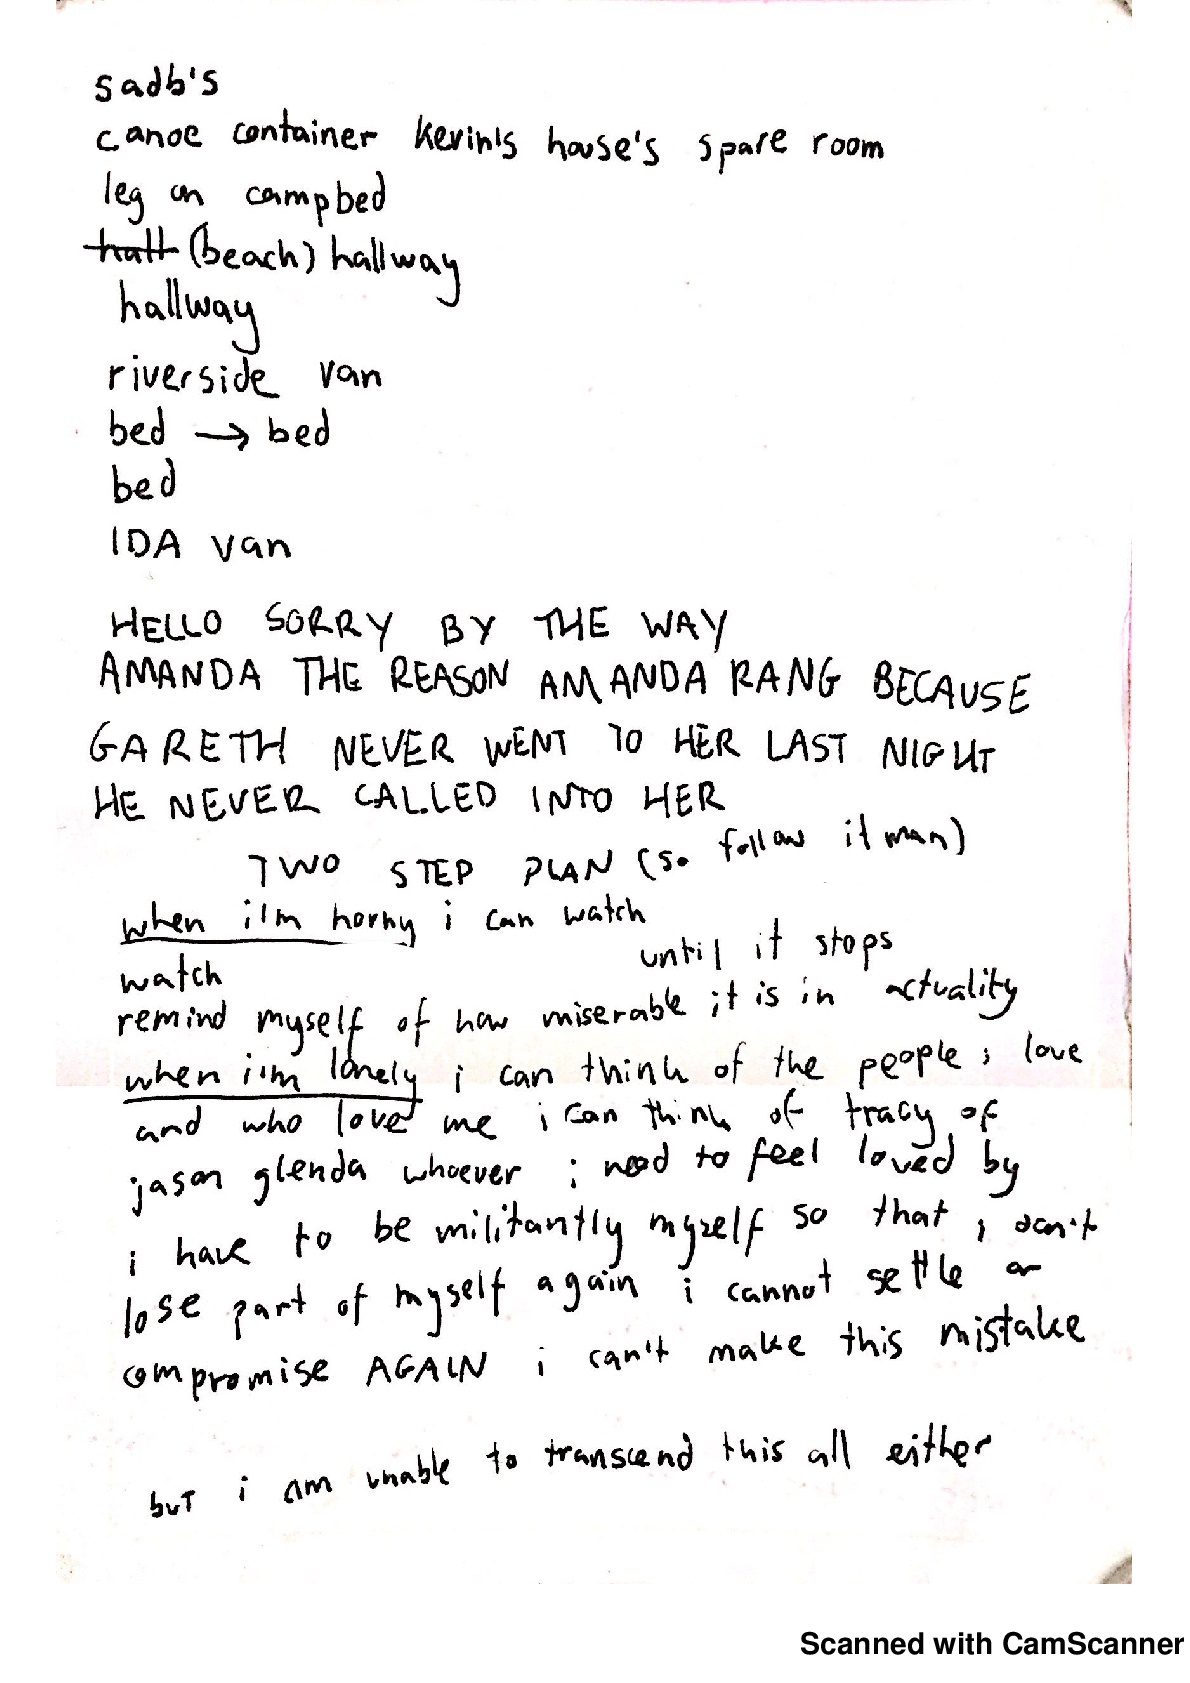 sadb's
canoe container kevin's house's spare room
leg on campbed
hall (beach) hallway
hallway
riverside van
bed → bed
bed
IDA van
HELLO SORRY BY THE WAY
AMANDA THE REASON AMANDA RANG BECAUSE
GARETH NEVER WENT TO HER LAST NIGHT
HE NEVER CALLED INTO HER
TWO STEP PLAN (so follow it man)
when i'm horny i can watch
watch until it stops
remind myself of how miserable it is in actuality
when i'm lonely i can think of the people i love
and who love me i can think of tracy of
jason glenda whoever i need to feel loved by
i have to be militantly myself so that i don't
lose part of myself again i cannot settle or
compromise AGAIN i can't make this mistake
but i am unable to transcend this all either
Scanned with CamScanner